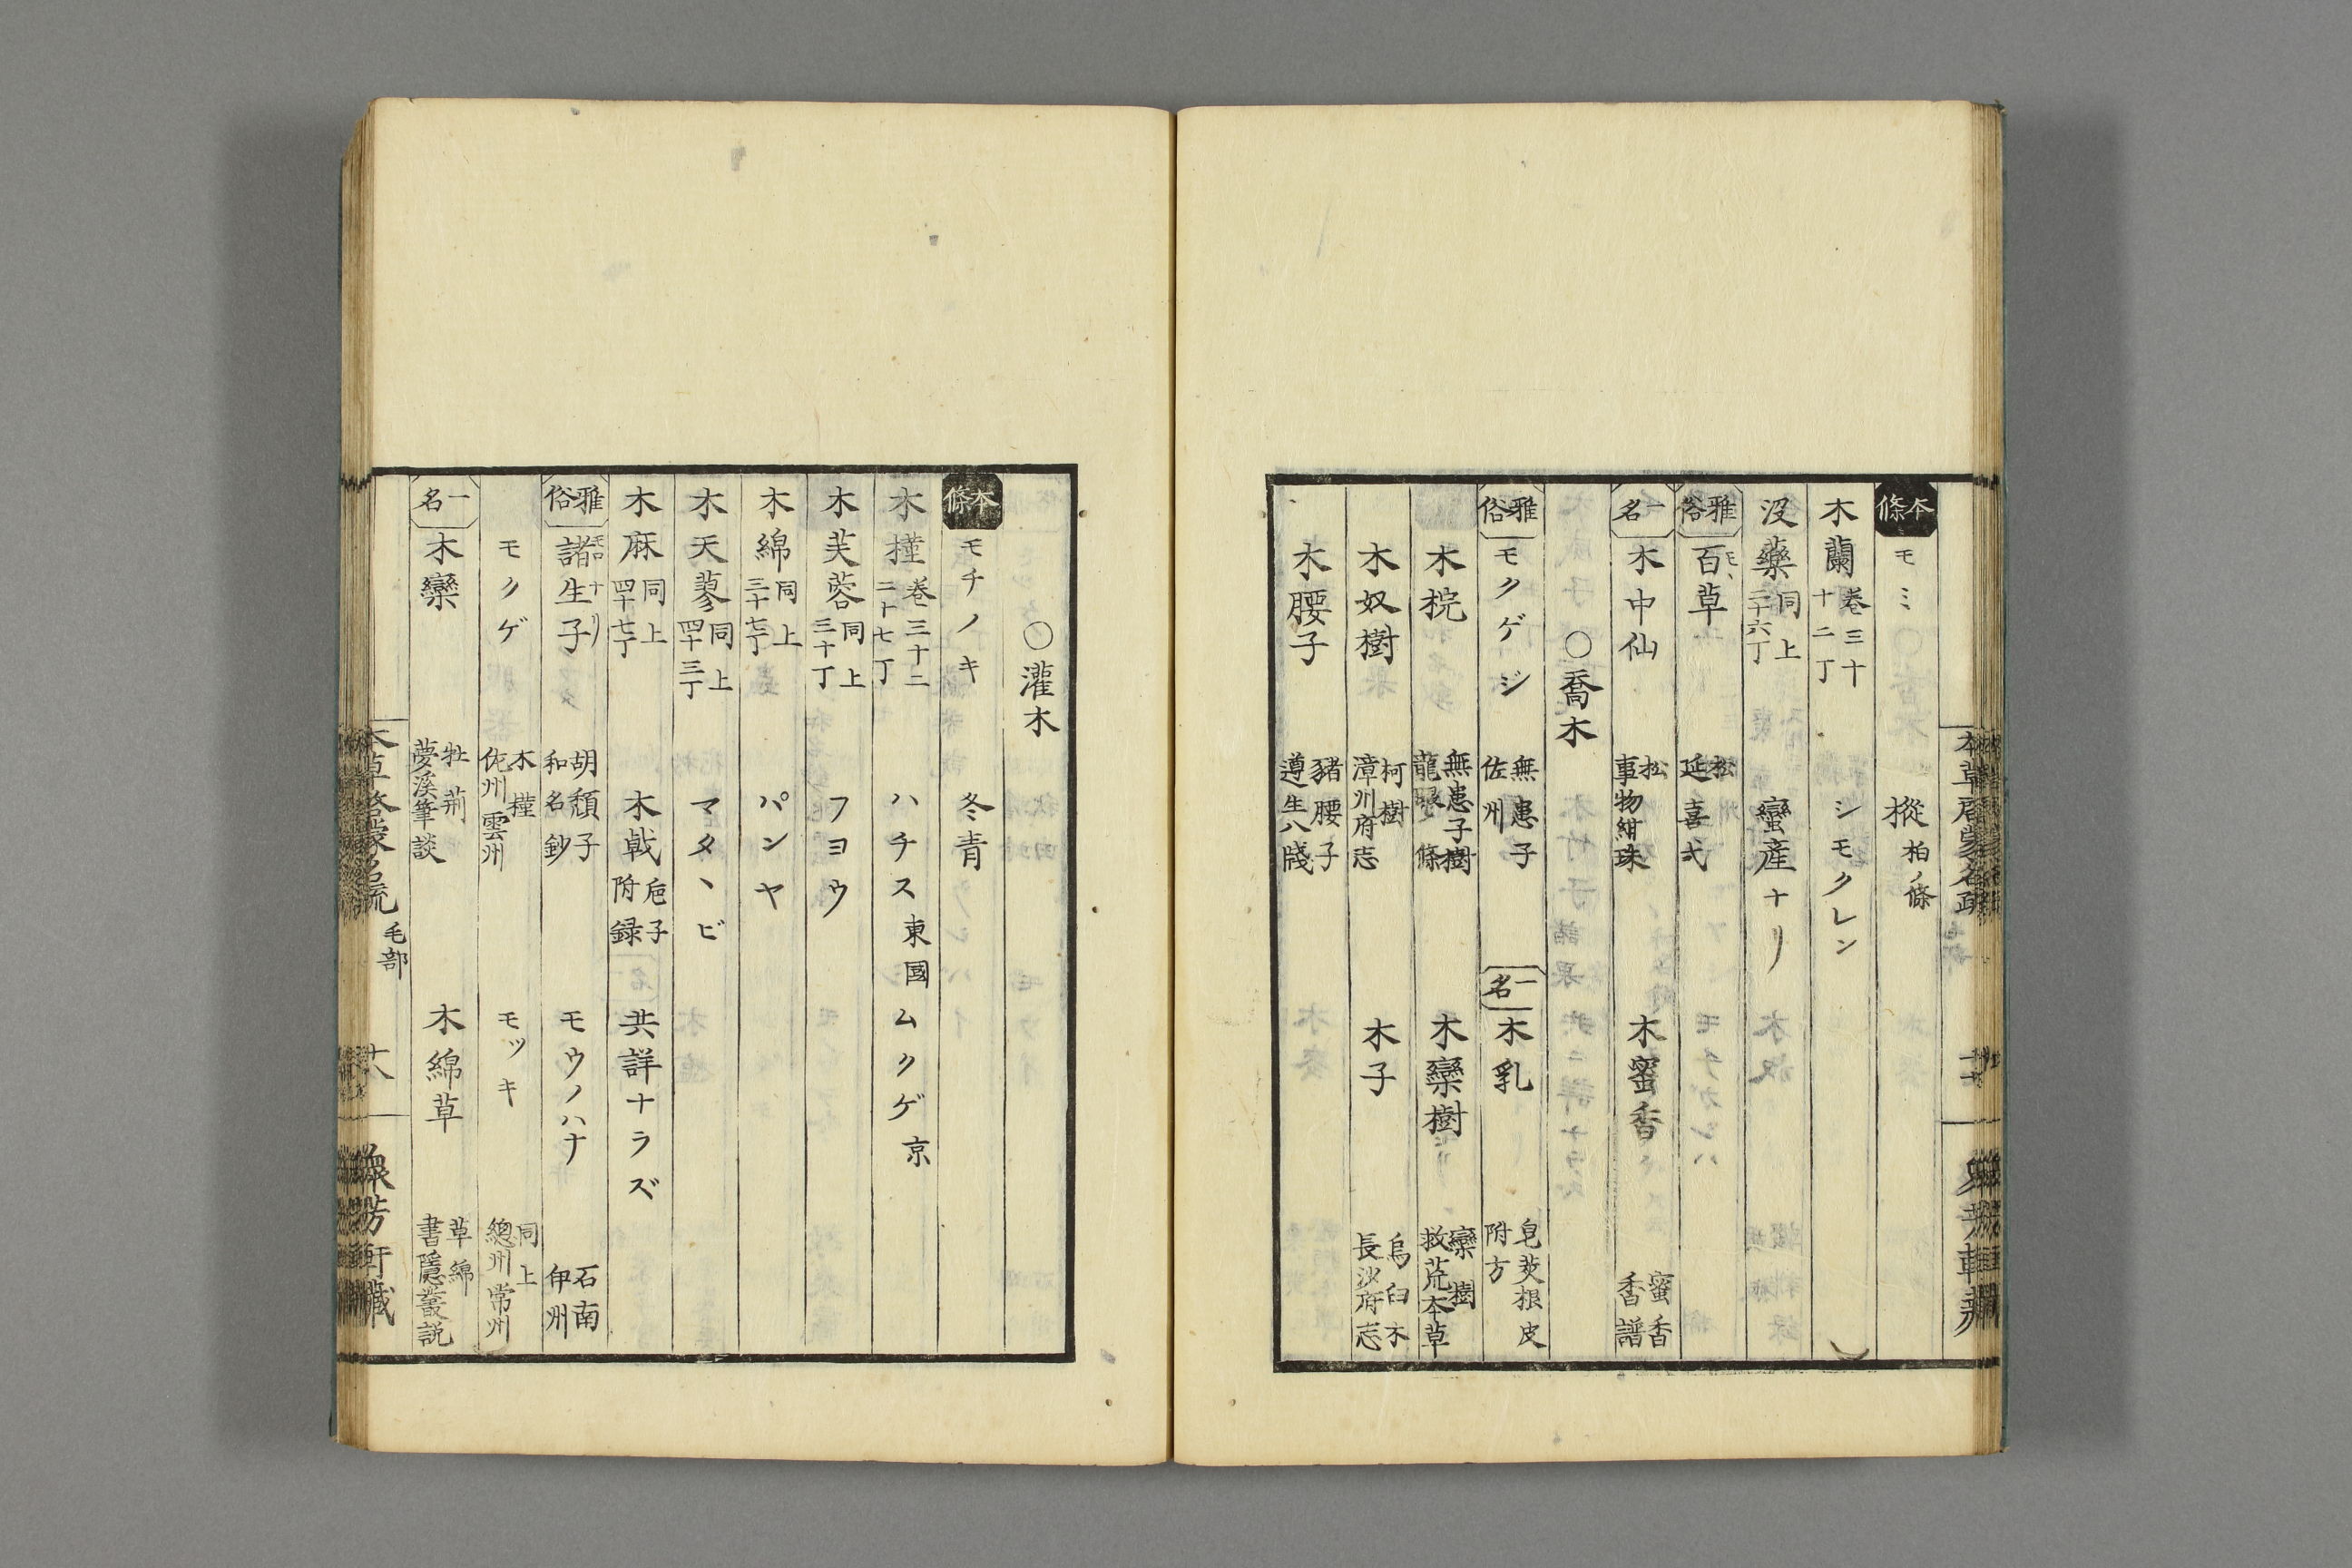 本草啓蒙名疏
本條 モミ 樅 柏ノ條
木蘭 巻三十 十二丁 シモクレン
沒藥 同上 二十六丁 蠻産ナリ
雅俗 百草 モヽ 松 延喜式
一名 木中仙 松 事物紺珠 木蜜香 蜜香 香譜
○喬木
雅俗 モクゲジ 無患子 佐州 一名 木乳 皂莢根皮 附方
木梡 無患子樹 龍眼條 木欒樹 欒樹 救荒本草
木奴樹 柯樹 漳州府志 木子 烏臼木 長沙府志
木腰子 豬腰子 遵生八牋
○灌木
本條 モチノキ 冬青
木槿 巻三十二 二十七丁 ハチス 東國 ムクゲ 京
木芙蓉 同上 三十丁 フヨウ
木綿 同上 三十七丁 パンヤ
木天蓼 同上 四十三丁 マタヽビ
木麻 同上 四十七丁 木戟 巵子 附録 共詳ナラズ
雅俗 諸生子 モロナリ 胡頽子 和名鈔 モウノハナ 石南 伊州
モクゲ 木槿 佐州 雲州 モッキ 同上 總州 常州
一名 木欒 牡荊 夢溪筆談 木綿草 草綿 書隱叢説
本草啓蒙名疏 毛部 十八 衆芳軒藏